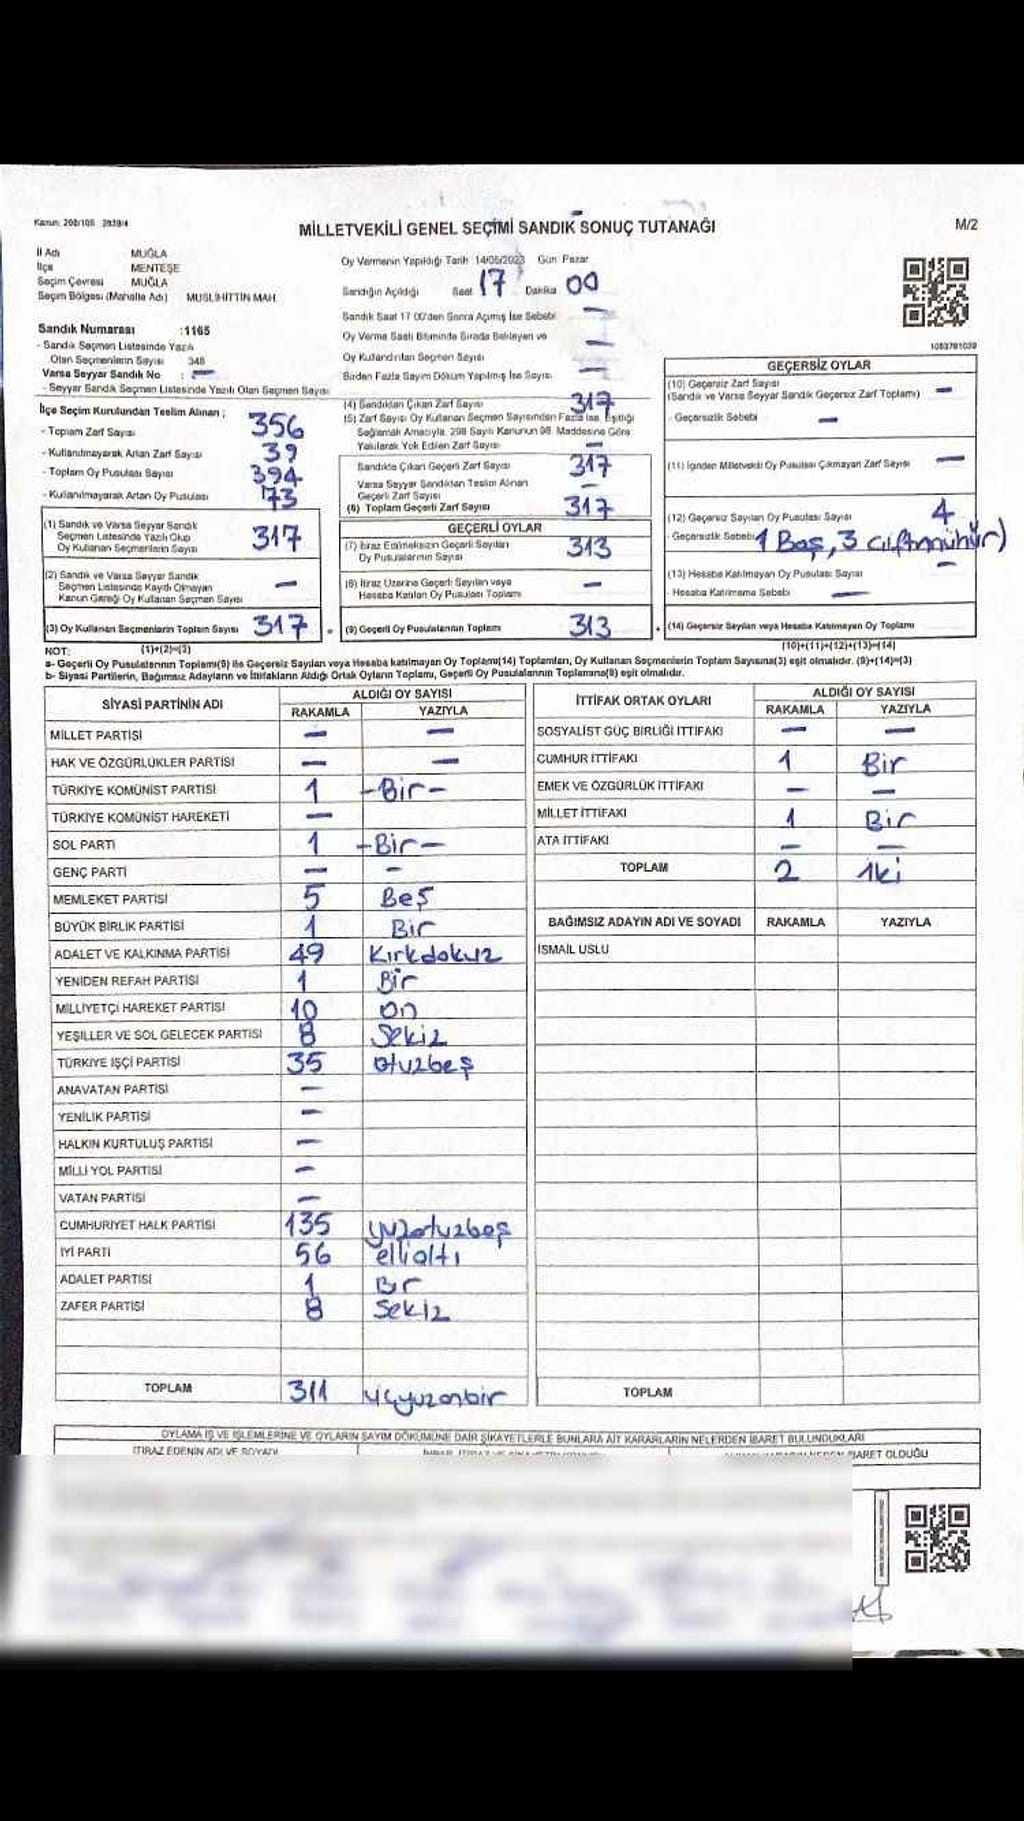 Kanun: 298/105 2839/4
MİLLETVEKİLİ GENEL SEÇİMİ SANDIK SONUÇ TUTANAĞI
M/2
İl Adı MUĞLA
İlçe MENTEŞE
Seçim Çevresi MUĞLA
Seçim Bölgesi (Mahalle Adı) MUSLİHİTTİN MAH.
Sandık Numarası :1165
- Sandık Seçmen Listesinde Yazılı
Olan Seçmenlerin Sayısı 348
Varsa Seyyar Sandık No : —
- Seyyar Sandık Seçmen Listesinde Yazılı Olan Seçmen Sayısı
Oy Vermenin Yapıldığı Tarih 14/05/2023 Gün Pazar
Sandığın Açıldığı Saat 17 Dakika 00
Sandık Saat 17 00'den Sonra Açılmış İse Sebebi —
Oy Verme Saati Bitiminde Sırada Bekleyen ve
Oy Kullandırılan Seçmen Sayısı —
Birden Fazla Sayım Döküm Yapılmış İse Sayısı —
1083781039
İlçe Seçim Kurulundan Teslim Alınan ;
- Toplam Zarf Sayısı 356
- Kullanılmayarak Artan Zarf Sayısı 39
- Toplam Oy Pusulası Sayısı 394
- Kullanılmayarak Artan Oy Pusulası 73
(1) Sandık ve Varsa Seyyar Sandık
Seçmen Listesinde Yazılı Olup
Oy Kullanan Seçmenlerin Sayısı 317
(2) Sandık ve Varsa Seyyar Sandık
Seçmen Listesinde Kaydı Olmayan
Kanun Gereği Oy Kullanan Seçmen Sayısı —
(3) Oy Kullanan Seçmenlerin Toplam Sayısı 317
(4) Sandıktan Çıkan Zarf Sayısı 317
(5) Zarf Sayısı Oy Kullanan Seçmen Sayısından Fazla İse, Eşitliği
Sağlamak Amacıyla, 298 Sayılı Kanunun 98. Maddesine Göre
Yakılarak Yok Edilen Zarf Sayısı —
Sandıkta Çıkan Geçerli Zarf Sayısı 317
Varsa Seyyar Sandıktan Teslim Alınan
Geçerli Zarf Sayısı —
(6) Toplam Geçerli Zarf Sayısı 317
GEÇERLİ OYLAR
(7) İtiraz Edilmeksizin Geçerli Sayılan
Oy Pusulalarının Sayısı 313
(8) İtiraz Üzerine Geçerli Sayılan veya
Hesaba Katılan Oy Pusulası Toplamı —
(9) Geçerli Oy Pusulalarının Toplamı 313
GEÇERSİZ OYLAR
(10) Geçersiz Zarf Sayısı
(Sandık ve Varsa Seyyar Sandık Geçersiz Zarf Toplamı) —
- Geçersizlik Sebebi —
(11) İçinden Milletvekili Oy Pusulası Çıkmayan Zarf Sayısı —
(12) Geçersiz Sayılan Oy Pusulası Sayısı 4
Geçersizlik Sebebi 1 Boş, 3 çiftmühür)
(13) Hesaba Katılmayan Oy Pusulası Sayısı —
- Hesaba Katılmama Sebebi —
(14) Geçersiz Sayılan veya Hesaba Katılmayan Oy Toplamı
NOT: (1)+(2)=(3) (10)+(11)+(12)+(13)=(14)
a- Geçerli Oy Pusulalarının Toplamı(9) ile Geçersiz Sayılan veya Hesaba katılmayan Oy Toplamı(14) Toplamları, Oy Kullanan Seçmenlerin Toplam Sayısına(3) eşit olmalıdır. (9)+(14)=(3)
b- Siyasi Partilerin, Bağımsız Adayların ve İttifakların Aldığı Ortak Oyların Toplamı, Geçerli Oy Pusulalarının Toplamına(9) eşit olmalıdır.
SİYASİ PARTİNİN ADI ALDIĞI OY SAYISI
RAKAMLA YAZIYLA
MİLLET PARTİSİ — —
HAK VE ÖZGÜRLÜKLER PARTİSİ — —
TÜRKİYE KOMÜNİST PARTİSİ 1 -Bir-
TÜRKİYE KOMÜNİST HAREKETİ —
SOL PARTİ 1 -Bir-
GENÇ PARTİ — -
MEMLEKET PARTİSİ 5 Beş
BÜYÜK BİRLİK PARTİSİ 1 Bir
ADALET VE KALKINMA PARTİSİ 49 Kırkdokuz
YENİDEN REFAH PARTİSİ 1 Bir
MİLLİYETÇİ HAREKET PARTİSİ 10 On
YEŞİLLER VE SOL GELECEK PARTİSİ 8 Sekiz
TÜRKİYE İŞÇİ PARTİSİ 35 Otuzbeş
ANAVATAN PARTİSİ —
YENİLİK PARTİSİ —
HALKIN KURTULUŞ PARTİSİ —
MİLLİ YOL PARTİSİ —
VATAN PARTİSİ —
CUMHURİYET HALK PARTİSİ 135 yüzotuzbeş
İYİ PARTİ 56 ellialtı
ADALET PARTİSİ 1 Bir
ZAFER PARTİSİ 8 Sekiz
TOPLAM 311 üçyüzonbir
İTTİFAK ORTAK OYLARI ALDIĞI OY SAYISI
RAKAMLA YAZIYLA
SOSYALİST GÜÇ BİRLİĞİ İTTİFAKI — —
CUMHUR İTTİFAKI 1 Bir
EMEK VE ÖZGÜRLÜK İTTİFAKI — —
MİLLET İTTİFAKI 1 Bir
ATA İTTİFAKI — —
TOPLAM 2 iki
BAĞIMSIZ ADAYIN ADI VE SOYADI RAKAMLA YAZIYLA
İSMAİL USLU
TOPLAM
OYLAMA İŞ VE İŞLEMLERİNE VE OYLARIN SAYIM DÖKÜMÜNE DAİR ŞİKAYETLERLE BUNLARA AİT KARARLARIN NELERDEN İBARET BULUNDUKLARI
İTİRAZ EDENİN ADI VE SOYADI
İBARET OLDUĞU